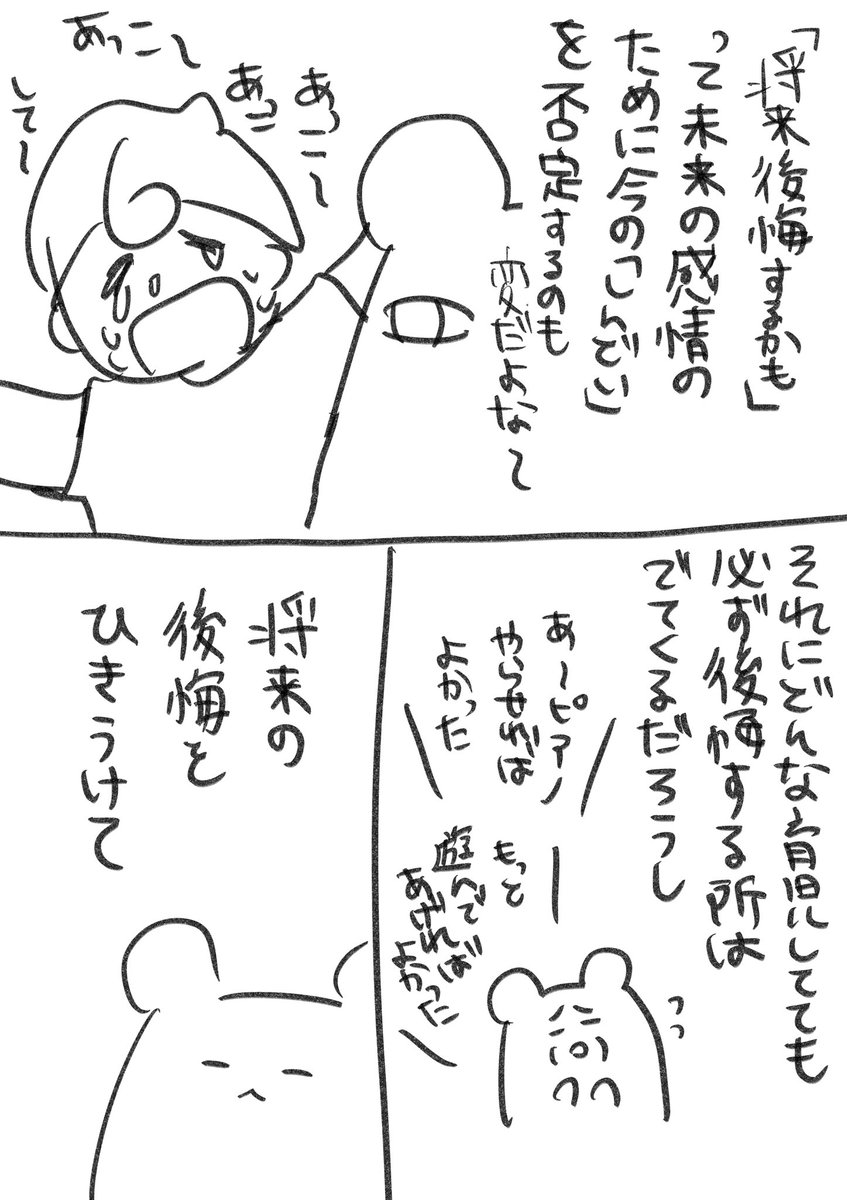 「将来後悔するかも」
って未来の感情の
ために今の「しんどい」
を否定するのも
変だよな〜
あっこ〜
あっこ
あっこ〜
して〜
それにどんな育児してても
必ず後悔する所は
でてくるだろうし
あ〜ピアノ
やらせれば
よかった
もっと
遊んであげれば
よかった
将来の
後悔を
ひきうけて